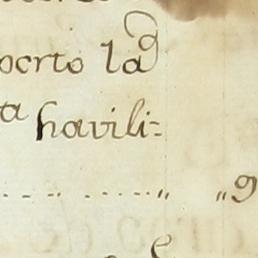 ocrto lad
ta havili=
9